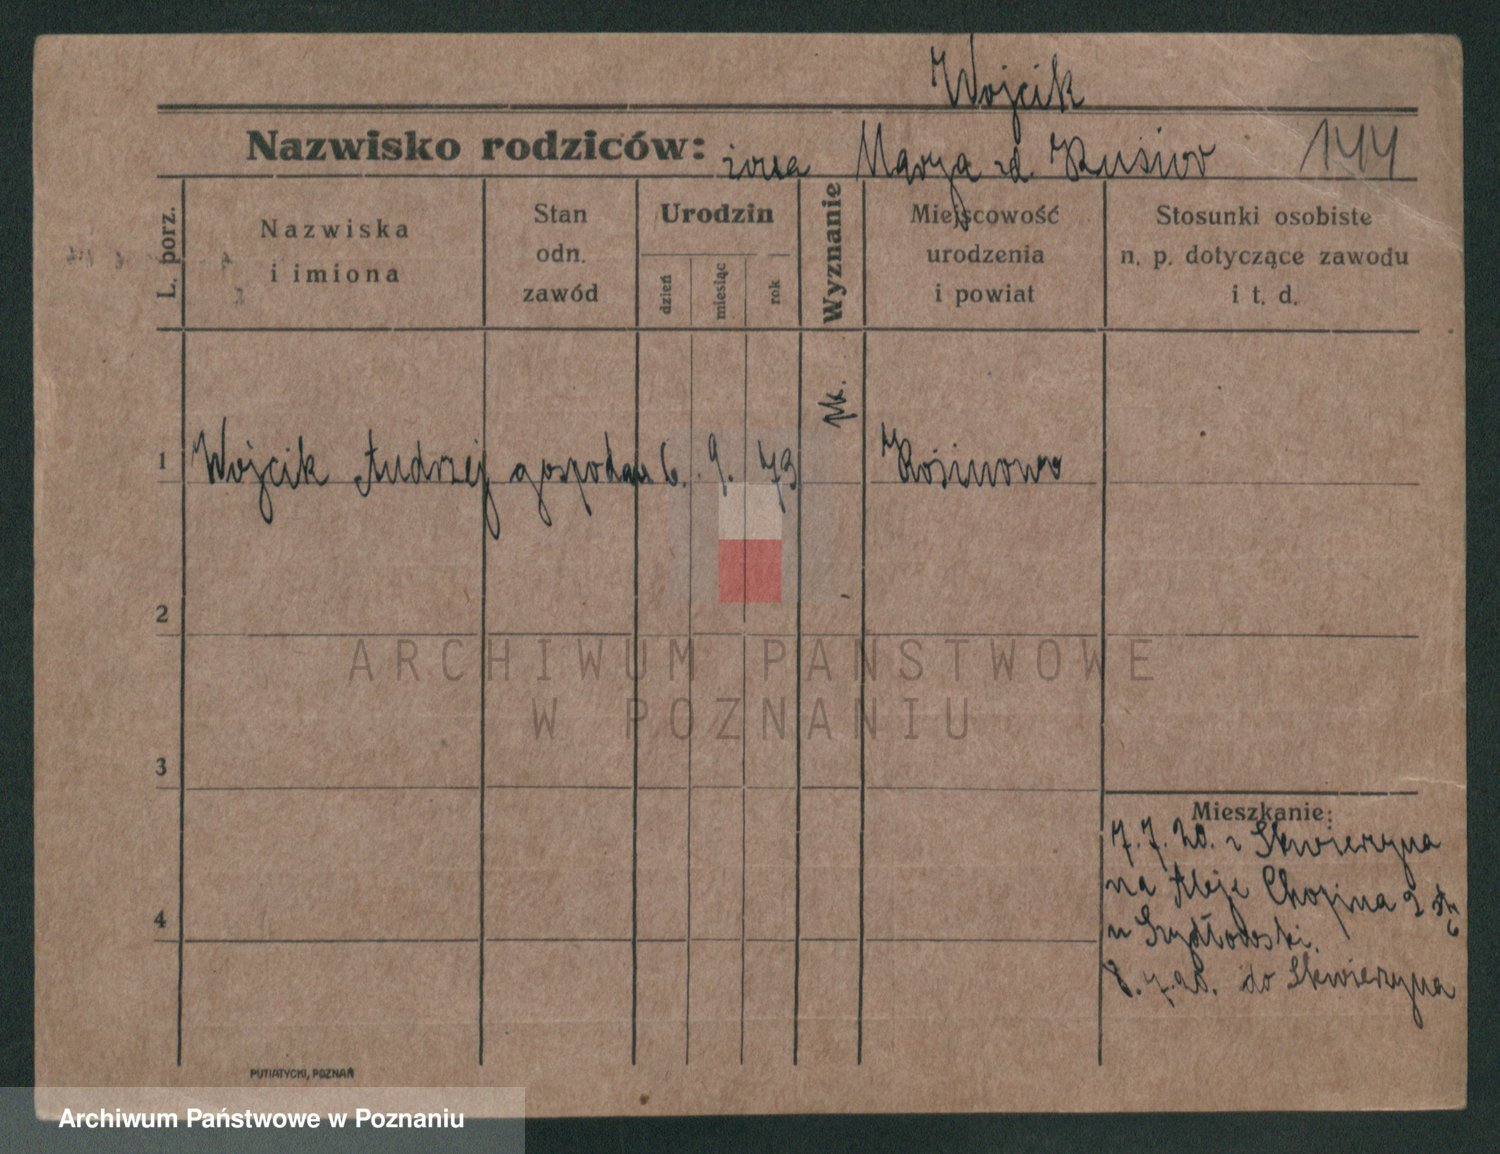 Wojcik
Nazwisko rodziców: żona Marja zd. Kuśnior 144
L. porz.
Nazwiska
i imiona
Stan
odn.
zawód
Urodzin
dzień
miesiąc
rok
Wyznanie
Miejscowość
urodzenia
i powiat
Stosunki osobiste
n. p. dotyczące zawodu
i t. d.
1 Wojcik Andrzej gospodarz 6. 9. 73 rk. Rosinowo
2
ARCHIWUM PAŃSTWOWE
W POZNANIU
3
Mieszkanie:
7.7.20. z Skwierzyna
na Aleje Chopina 2
u Szydłowski.
4
8.7.20. do Skwierzyna
PUTIATYCKI, POZNAŃ
Archiwum Państwowe w Poznaniu